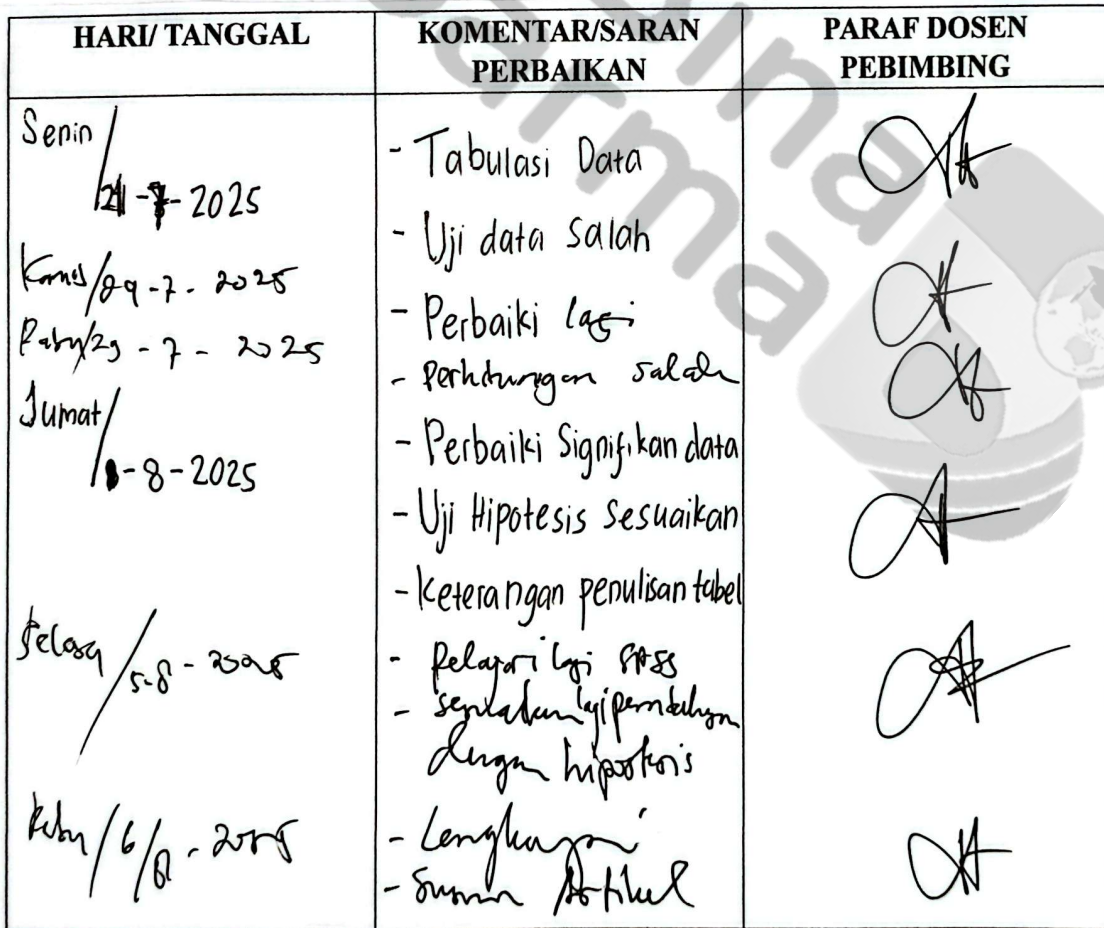 HARI/ TANGGAL
KOMENTAR/SARAN
PERBAIKAN
PARAF DOSEN
PEBIMBING
Senin / 21 -7- 2025
- Tabulasi Data
- Uji data salah
Kamis/24 -7 - 2025
- Perbaiki lagi
Rabu/23 - 7 - 2025
- Perhitungan salah
Jumat / 1-8-2025
- Perbaiki Signifikan data
- Uji Hipotesis Sesuaikan
- Keterangan penulisan tabel
Selasa / 5-8 - 2025
- Pelajari lagi SPSS
- sesuaikan lagi
dengan hipotesis
Rabu / 6/8 - 2025
- Lengkapi
- Susun Artikel
Bina
Darma